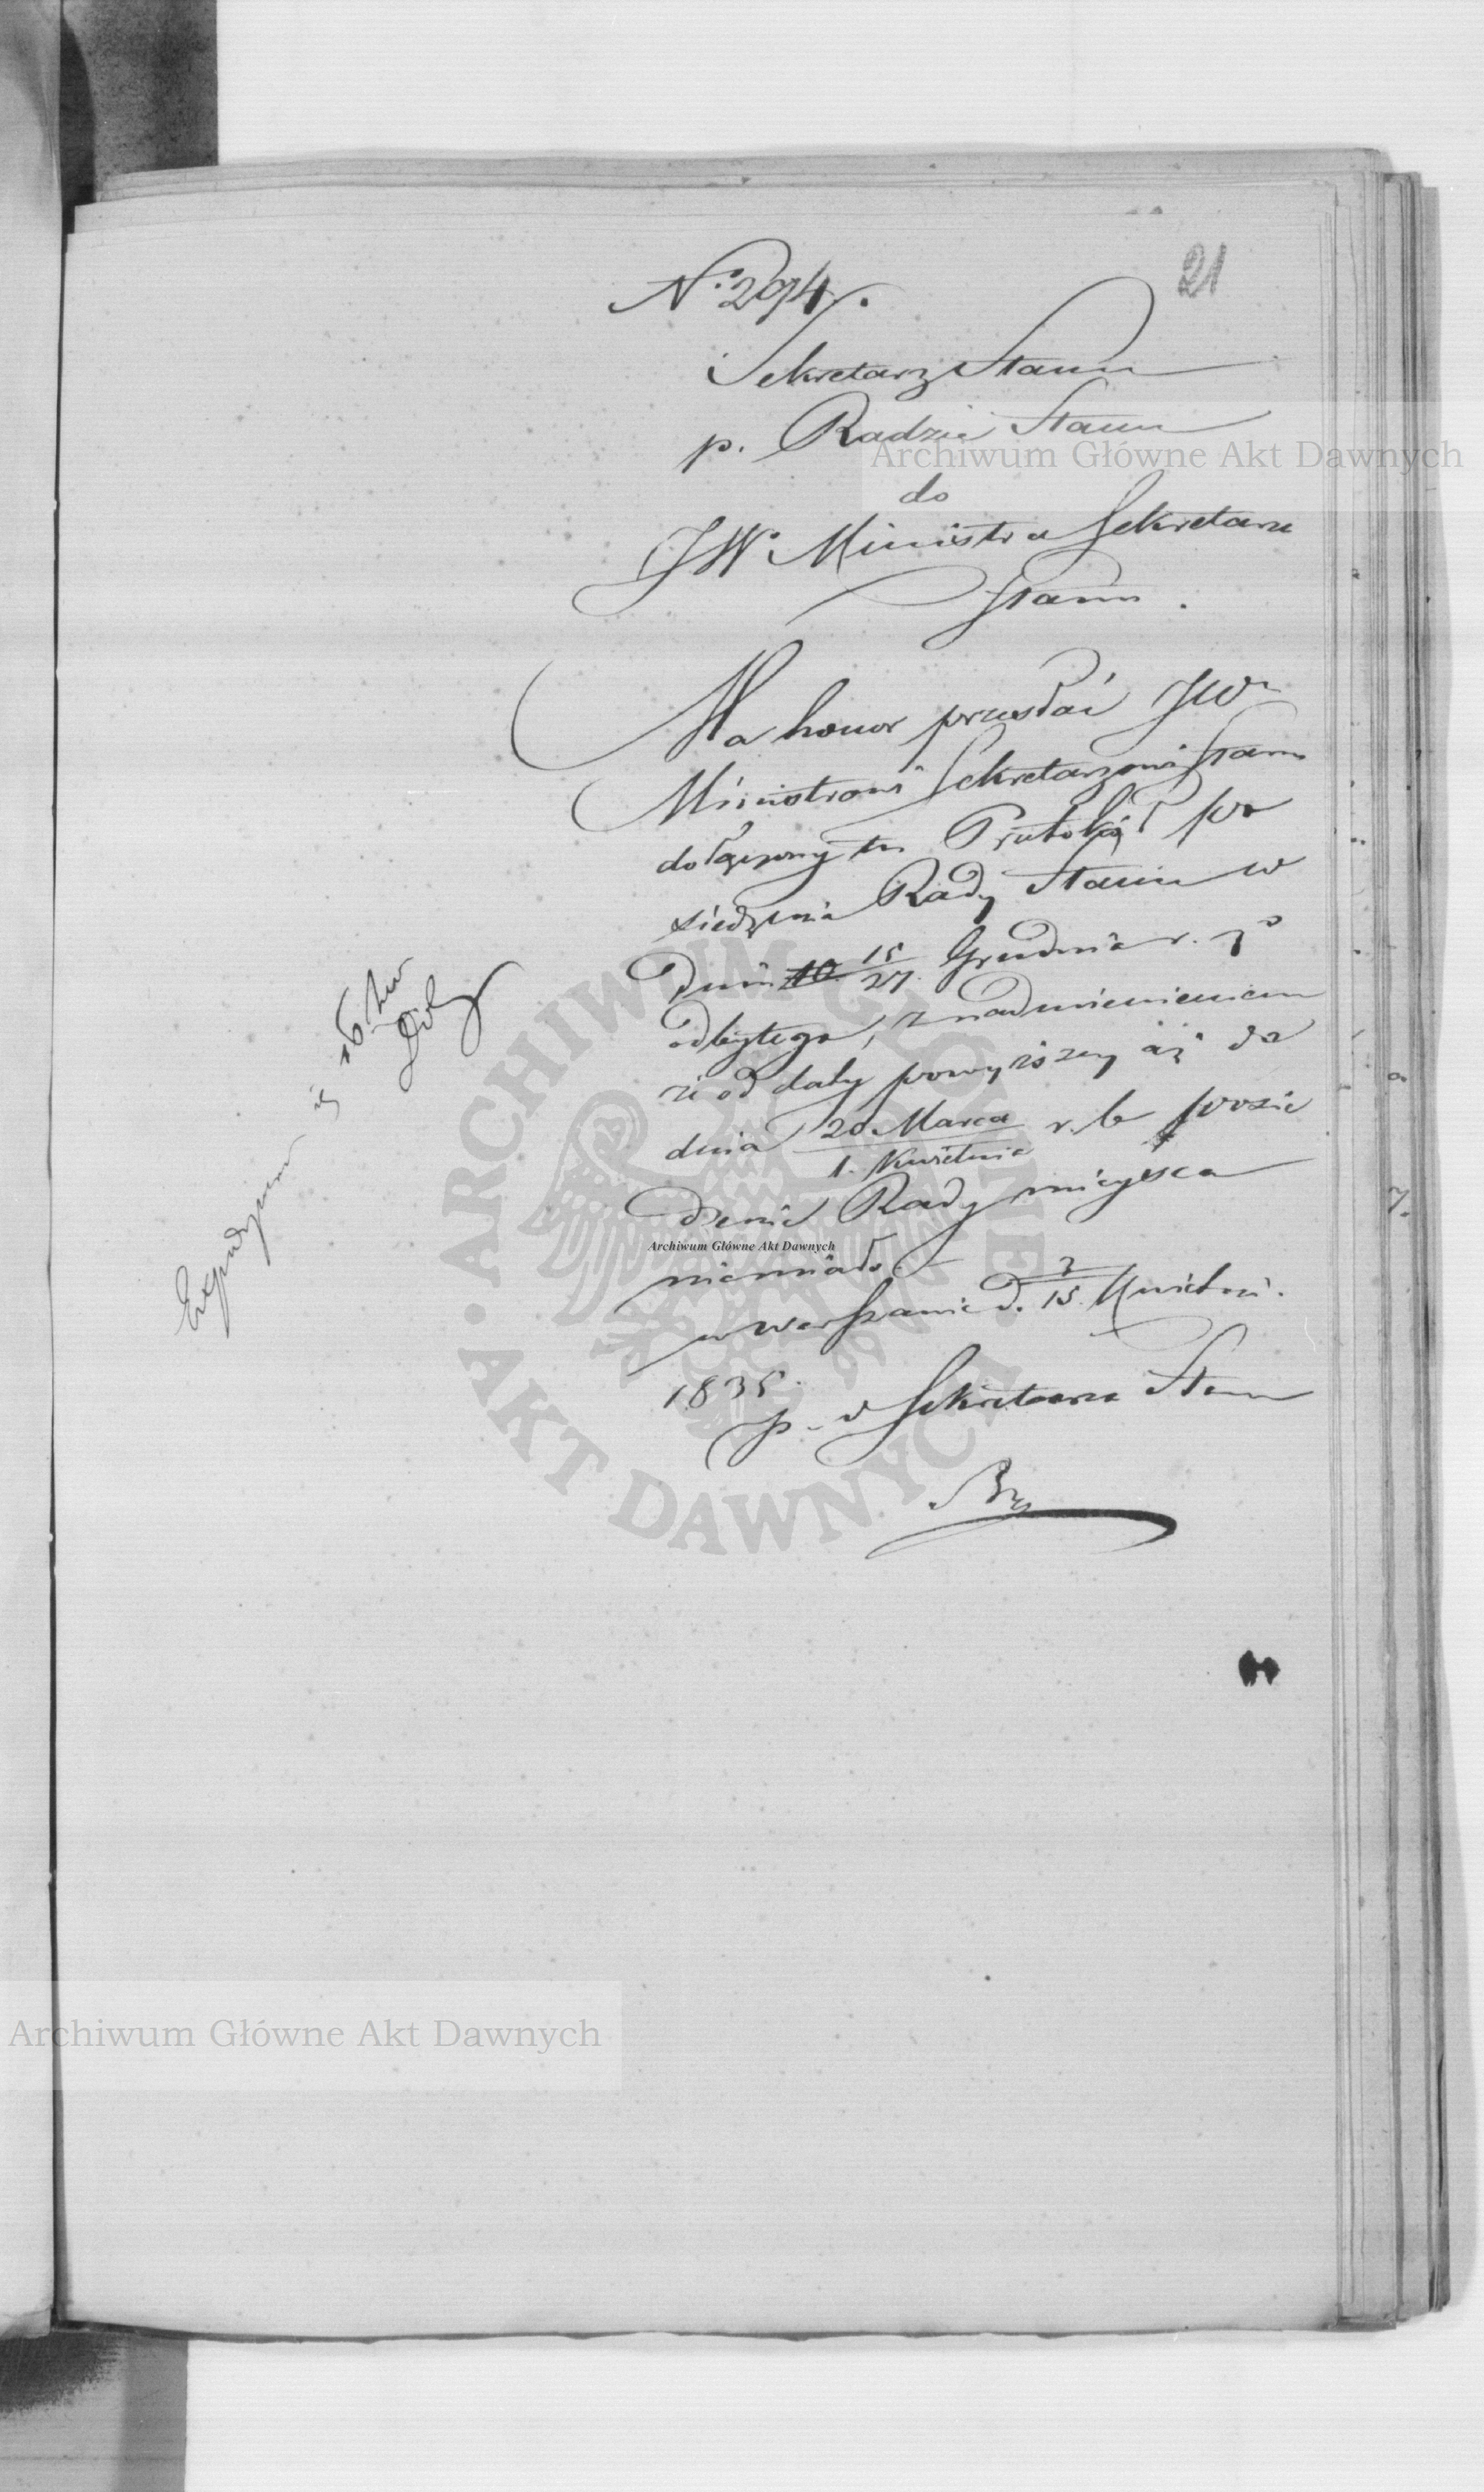 21
Sekretarz Stanu
p. Radzie Stanu
do
JW. Ministra Sekretarza
Stanu.
Ma honor przesłać JW
Ministrowi Sekretarzowi Stanu
dołączony tu Protokół po
siedzenia Rady Stanu w
Dniu 15/27 Grudnia r. z
odbytego, z nadmienieniem
że od daty powyższey aż do
dnia 20 Marca / 1. Kwietnia r. b posie
dzenie Rady mieysca
niemiało. –
w Warszawie d. 3/15. Kwietni.
1835.
p. o Sekretarza Stanu
Archiwum Główne Akt Dawnych
Archiwum Główne Akt Dawnych
ARCHIWUM GŁÓWNE • AKT DAWNYCH •
Archiwum Główne Akt Dawnych